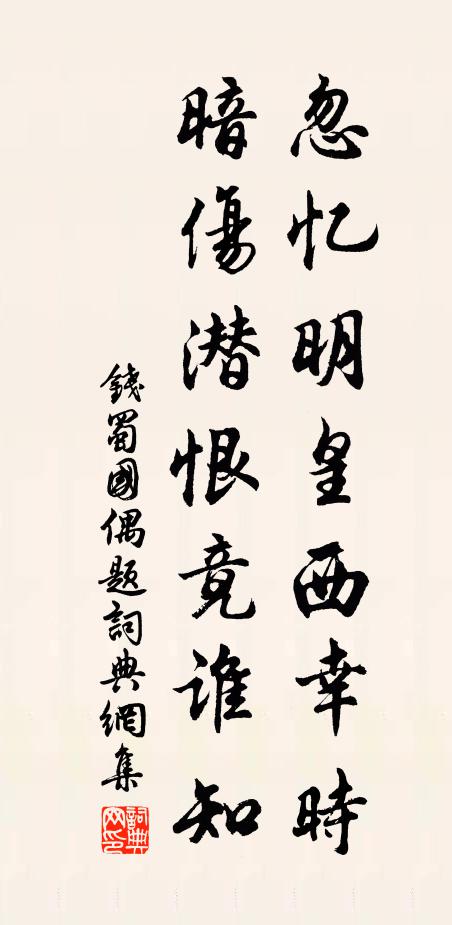 忽忆明皇西幸時
暗傷潜恨竟谁知
錢蜀國偶题詞典網集
詞典网印